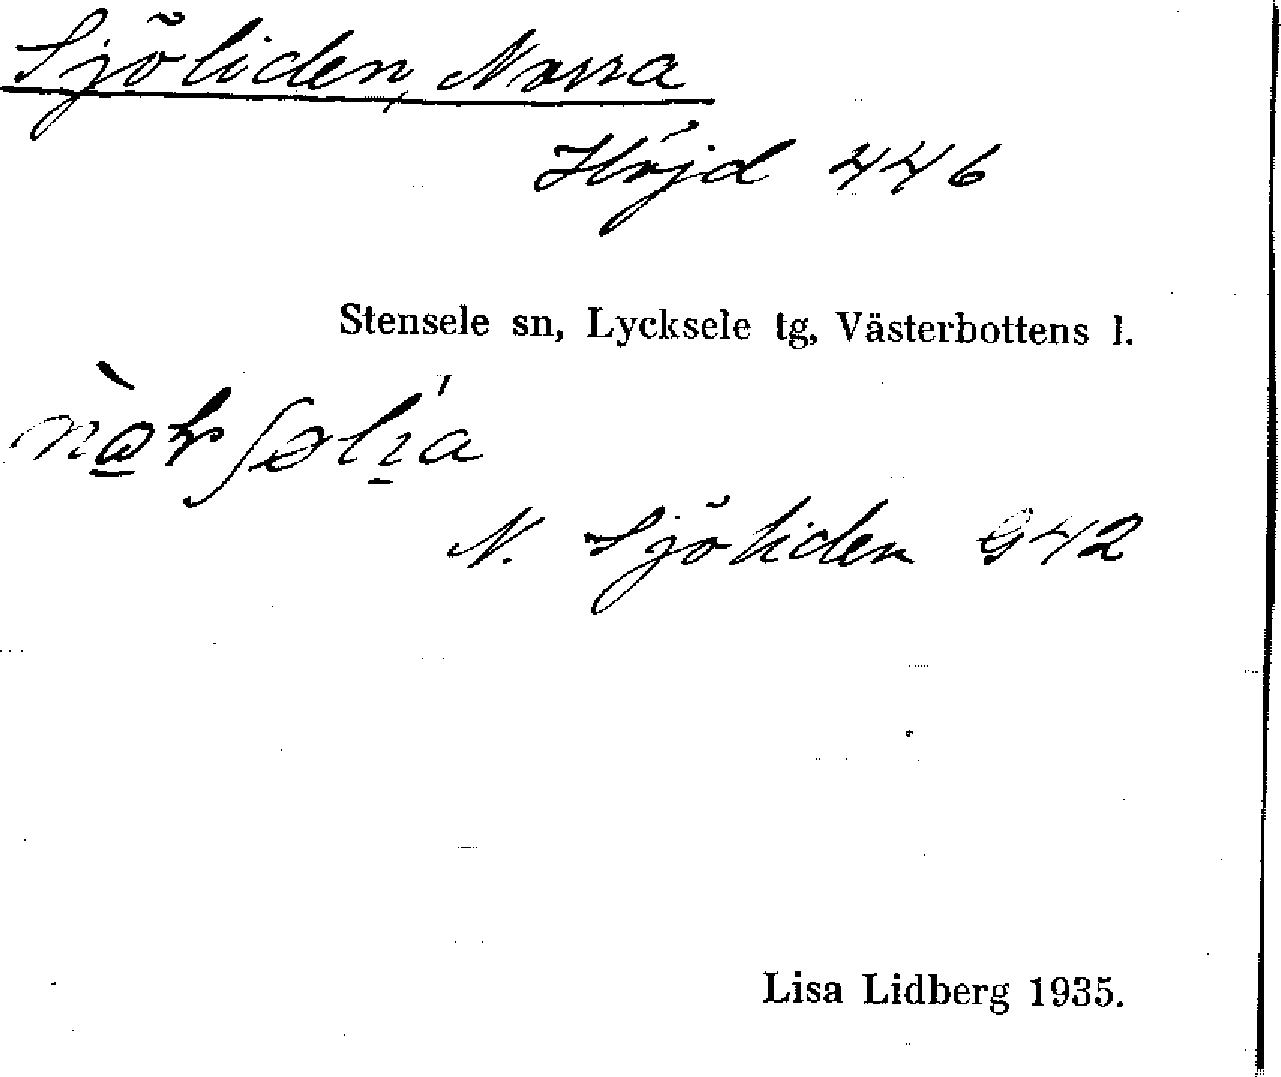 Sjöliden, Norra
Höjd 446
Stensele sn, Lycksele tg, Västerbottens l.
N. Sjöliden 942
Lisa Lidberg 1935.